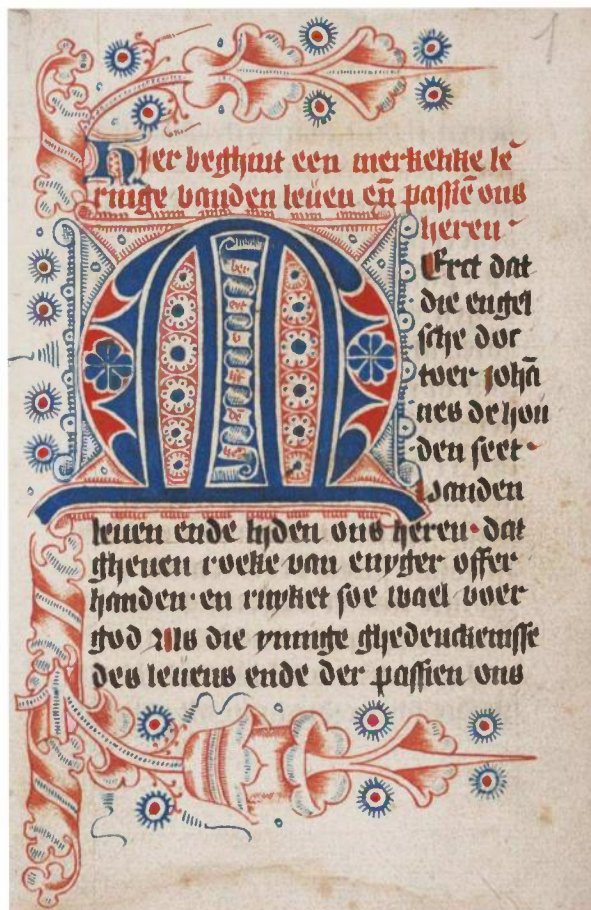 1
Hier beghint een merkelike le
ringe vanden leuen en̄ passiē ons
heren
M
Erct dat
die engel
sche doc
toer johā
nes de hou
den seet
vanden
leuen ende lyden ons heren· dat
gheuen roeke van enyger offer
handen· en ruyket soe wael voer
god Als die ynnige ghedenckenisse
des leuens ende der passien ons